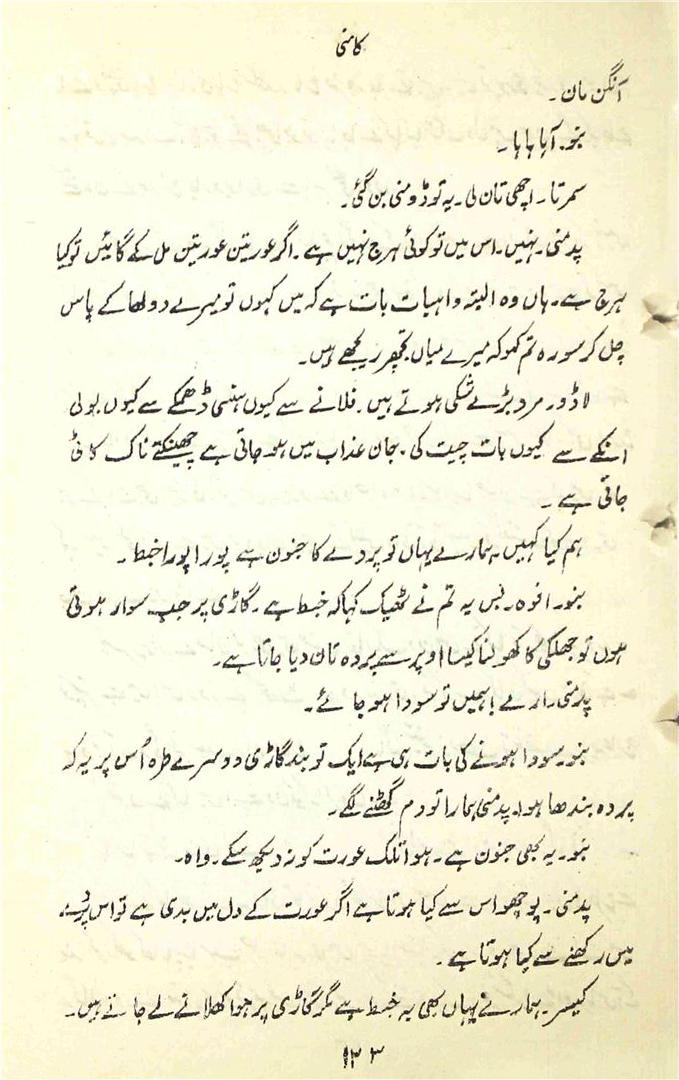 کامنی
آنگن مان۔
بنو۔ آہا ہا ہا۔
سمرتا۔ اچھی تان لی۔ یہ تو ڈومنی بن گئی۔
پدمنی۔ نہیں۔ اس میں تو کوئی ہرج نہیں ہے۔ اگر عورتین عورتین مل کے گائیں تو کیا
ہرج ہے۔ ہاں وہ البتہ واہیات بات ہے کہ میں کہوں تو میرے دولھا کے پاس
چل کر سو رہ تم کہو کہ میرے میاں تجھپر ریجھے ہیں۔
لاڈو۔ مرد بڑے شکی ہوتے ہیں۔ فلانے سے کیوں ہنسی ڈھمکے سے کیوں بولی
انکے سے کیوں بات چیت کی۔ جان عذاب میں ہو جاتی ہے چھینکتے ناک کاٹی
جاتی ہے۔
ہم کیا کہیں۔ ہمارے یہاں تو پردے کا جنون ہے پورا پورا خبط۔
بنو۔ افوہ۔ بس یہ تم نے ٹھیک کہا کہ خبط ہے۔ گاڑی پر جب سوار ہوتی
ہوں تو جھلکی کا کھولنا کیسا اوپر سے پردہ تان دیا جاتا ہے۔
پدمنی۔ ارے! ہمیں تو سودا ہو جائے۔
بنو۔ سودا ہونے کی بات ہی ہے ایک تو بند گاڑی دوسرے طرہ اُس پر یہ کہ
پردہ بندھا ہوا۔ پدمنی ہمارا تو دم گھٹنے لگے۔
بنو۔ یہ بھی جنون ہے۔ ہوا تلک عورت کو نہ دیکھ سکے۔ واہ۔
پدمنی۔ پوچھو اس سے کیا ہوتا ہے اگر عورت کے دل میں بدی ہے تو اس پردے
میں رکھنے سے کیا ہوتا ہے۔
کیسر۔ ہمارے یہاں بھی یہ خبط ہے مگر گاڑی پر ہوا کھلانے لے جاتے ہیں۔
۱۲۳